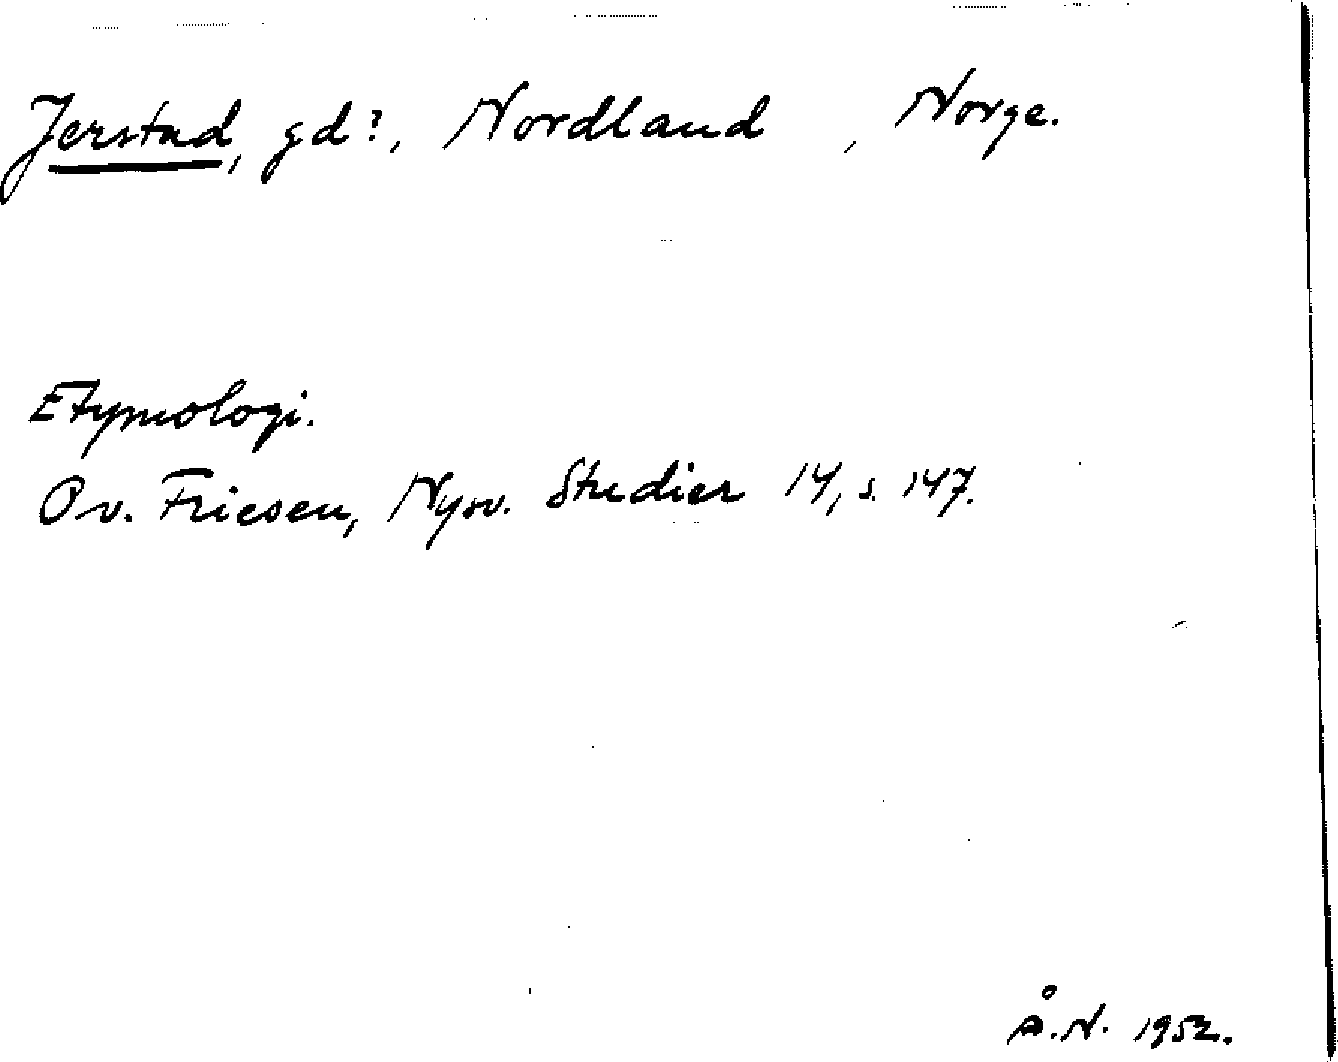 Jerstad, gd?, Nordland, Norge.
Etymologi.
O v. Friesen, Nysv. Studier 14, s. 147.
Å.N. 1952.